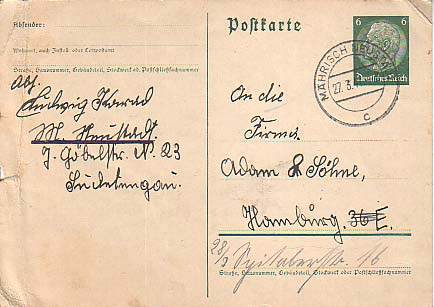 Absender:
Wohnort, auch Zustell- oder Leitpostamt
Straße, Hausnummer, Gebäudeteil, Stockwerk od. Postschließfachnummer
Abs.
Ludwig Konrad
M. Neustadt.
J. Göbelstr. N. 23
Sudetengau.
Postkarte
6 6
Deutsches Reich
MÄHRISCH NEUSTADT
27.3.
c
An die
Firma
Adam & Söhne,
Hamburg. 36 E.
28/3 Spitalerstr. 16
Straße, Hausnummer, Gebäudeteil, Stockwerk oder Postschließfachnummer